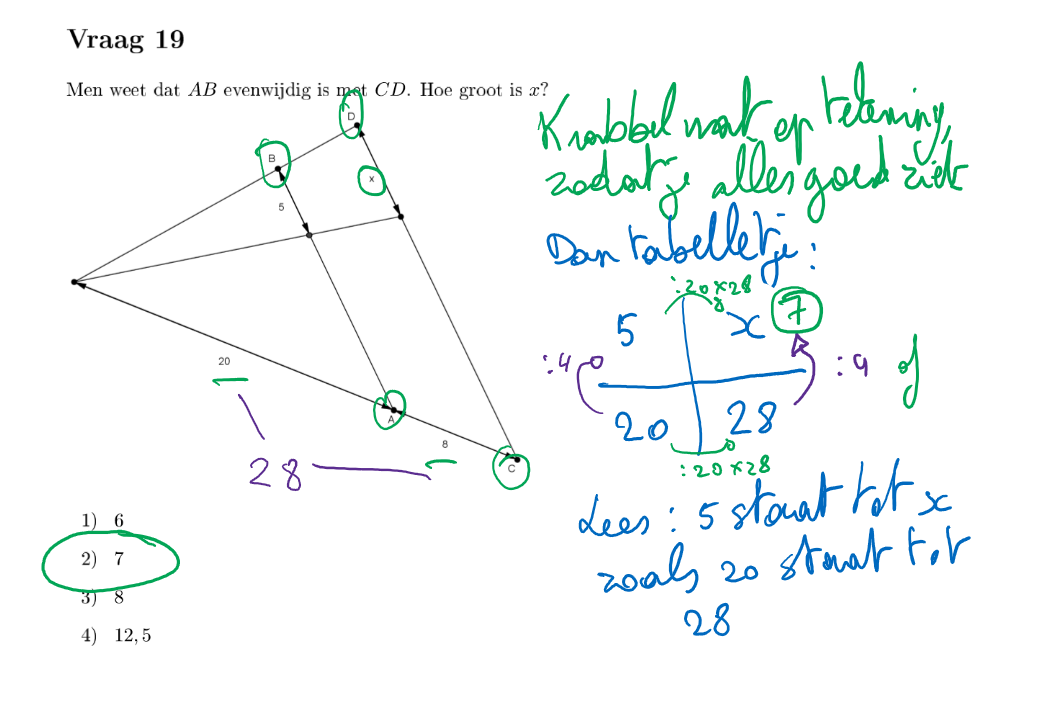 Vraag 19
Men weet dat AB evenwijdig is met CD. Hoe groot is x?
D
B
x
5
20
A
8
C
28
1) 6
2) 7
3) 8
4) 12,5
Krabbel wat op tekening,
zodat je alles goed ziet
Dan tabelletje:
:20 x28
5 x 7
:4 :4 of
20 28
:20 x28
Lees: 5 staat tot x
zoals 20 staat tot
28